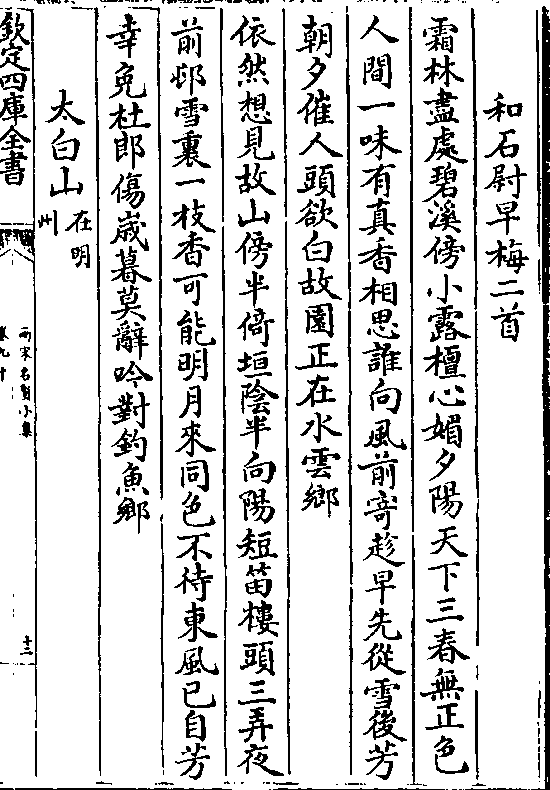 和石尉早梅二首
霜林盡處碧溪傍小露檀心媚夕陽天下三春無正色
人間一味有真香相思誰向風前寄趁早先從雪後芳
朝夕催人頭欲白故園正在水雲鄉
依然想見故山傍半倚垣陰半向陽短笛樓頭三弄夜
前邨雪裏一枝香可能明月來同色不待東風已自芳
幸免杜郎傷歲暮莫辭吟對釣魚鄉
太白山在明州
欽定四庫全書
兩宋名賢小集
卷九十
十三